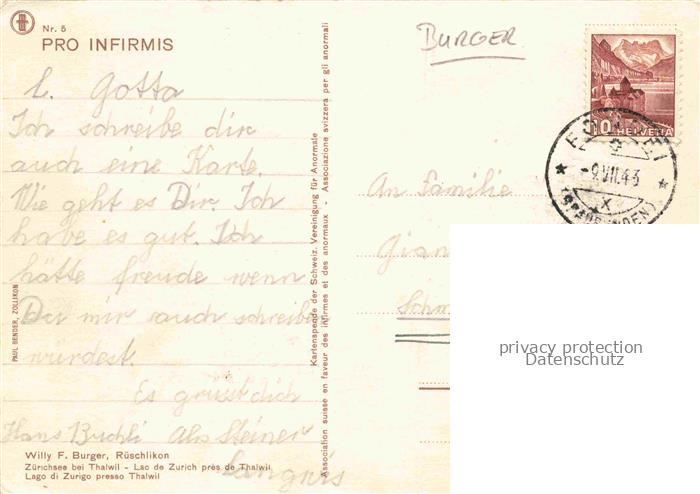 Nr. 5
PRO INFIRMIS
BURGER
10 HELVETIA
-9.VII.43
X
L. Gotta
Ich schreibe dir
auch eine Karte.
Wie geht es Dir. Ich
habe es gut. Ich
hätte freude wenn
Du mir auch schreiben
würdest.
Es grüsst dich
Hans Buchli
Willy F. Burger, Rüschlikon
Zürichsee bei Thalwil - Lac de Zurich près de Thalwil
Lago di Zurigo presso Thalwil
PAUL BENDER, ZOLLIKON
Kartenspende der Schweiz. Vereinigung für Anormale
Association suisse en faveur des infirmes et des anormaux - Associazione svizzera per gli anormali
An Familie
Gian
Sch
privacy protection
Datenschutz